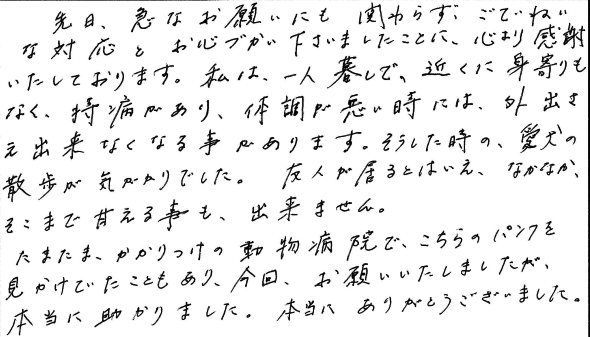 先日、急なお願いにも関わらず、ごていねい
な対応とお心づかい下さいましたことに、心より感謝
いたしております。私は、一人暮しで、近くに身寄りも
なく、持病があり、体調が悪い時には、外出さ
え出来なくなる事があります。そうした時の、愛犬の
散歩が気がかりでした。友人が居るとはいえ、なかなか、
そこまで甘える事も、出来ません。
たまたま、かかりつけの動物病院で、こちらのパンフを
見かけていたこともあり、今回、お願いいたしましたが、
本当に助かりました。本当にありがとうございました。